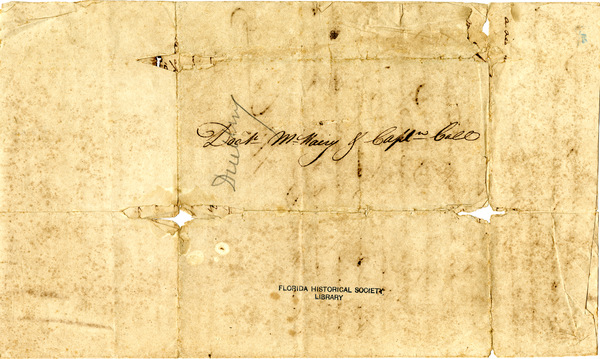 Doctr McNary & Captn Call
FLORIDA HISTORICAL SOCIETY
LIBRARY